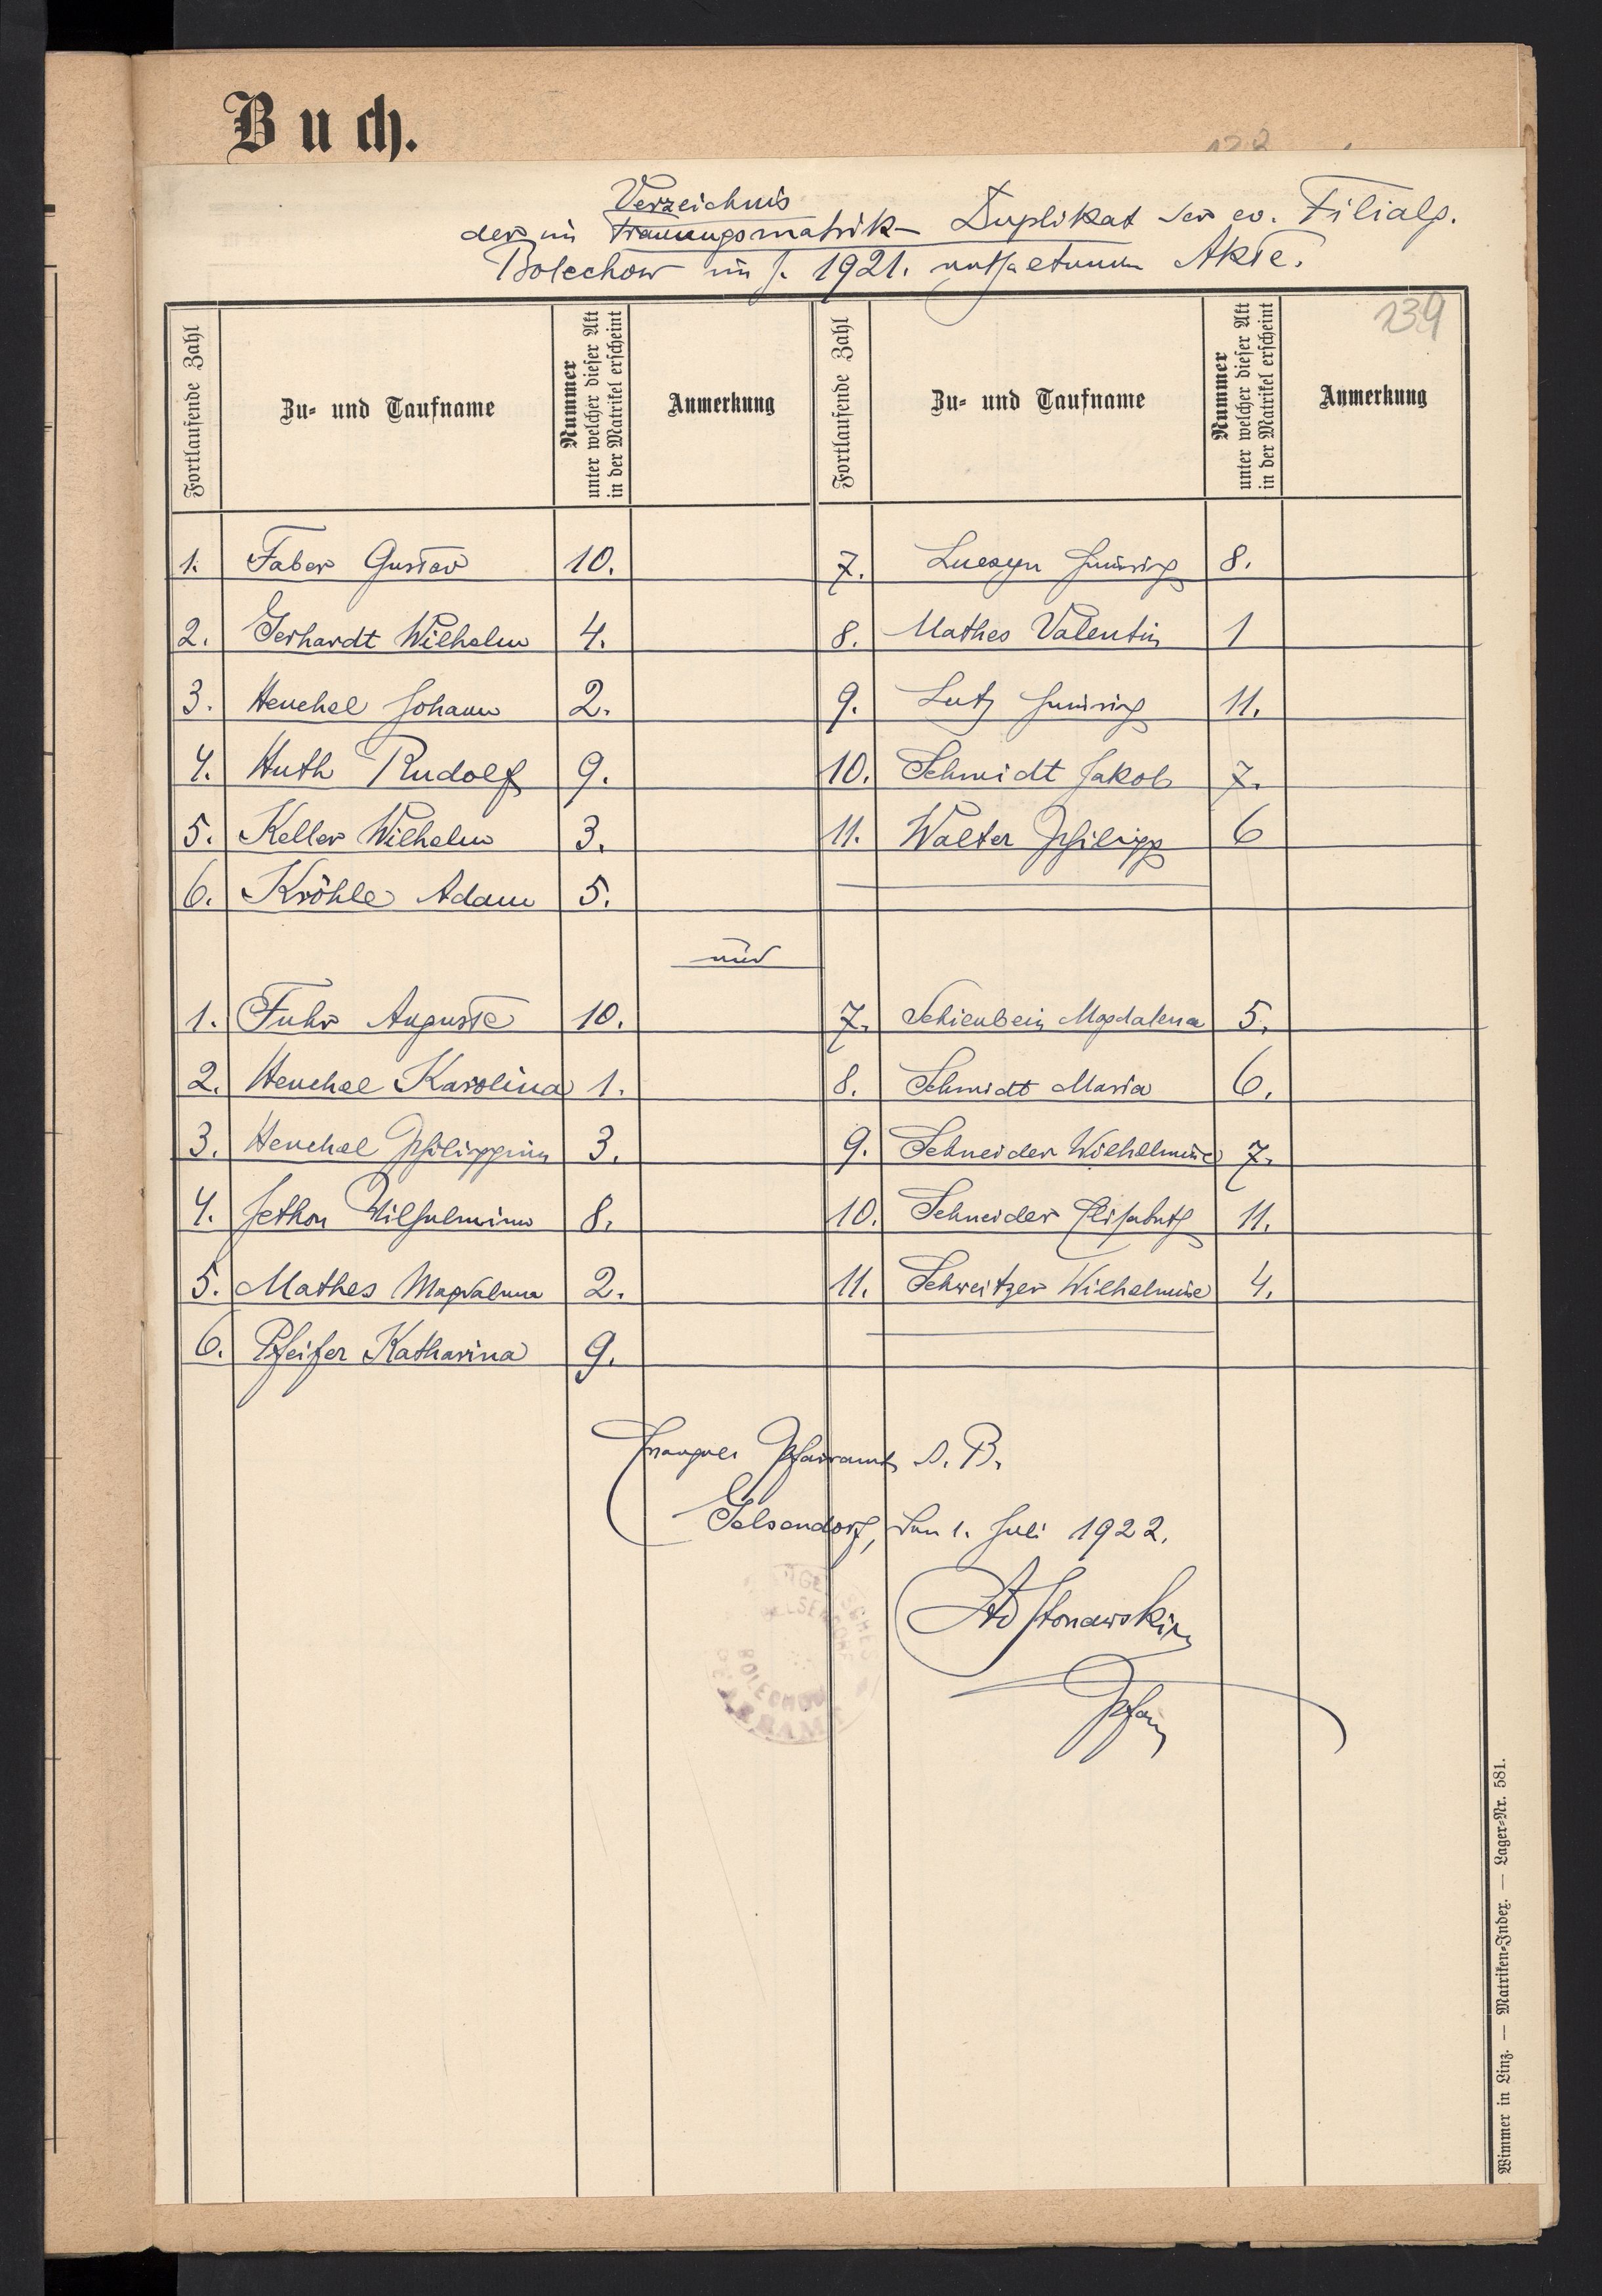 Buch.
Verzeichnis
der im Trauungsmatrik- Duplikat der ev. Filialg.
Bolechow im J. 1921. enthaltenen Akte.
139
Fortlaufende Zahl
Zu- und Taufname
Nummer
unter welcher dieser Akt
in der Matrikel erscheint
Anmerkung
Fortlaufende Zahl
Zu- und Taufname
Nummer
unter welcher dieser Akt
in der Matrikel erscheint
Anmerkung
1. Faber Gustav 10.
2. Gerhardt Wilhelm 4.
3. Henchel Johann 2.
4. Huth Rudolf 9.
5. Keller Wilhelm 3.
6. Kröhle Adam 5.
7. Heinrich 8.
8. Mathes Valentin 1
9. Lutz Heinrich 11.
10. Schmidt Jakob 7.
11. Walter Philipp 6
und
1. Fuhr Auguste 10.
2. Henchel Karolina 1.
3. Henchel Philippine 3.
4. Jethon Wilhelmine 8.
5. Mathes Magdalena 2.
6. Pfeifer Katharina 9.
7. Schienbein Magdalena 5.
8. Schmidt Maria 6.
9. Schneider Wilhelmine 7.
10. Schneider Elisabeth 11.
11. Schweitzer Wilhelmine 4.
Evangel. Pfarramt A. B.
Gelsendorf, den 1. Juli 1922.
Stonawski
Pfarr
BOLECHOW
Wimmer in Linz. — Matriken-Index. — Lager-Nr. 581.